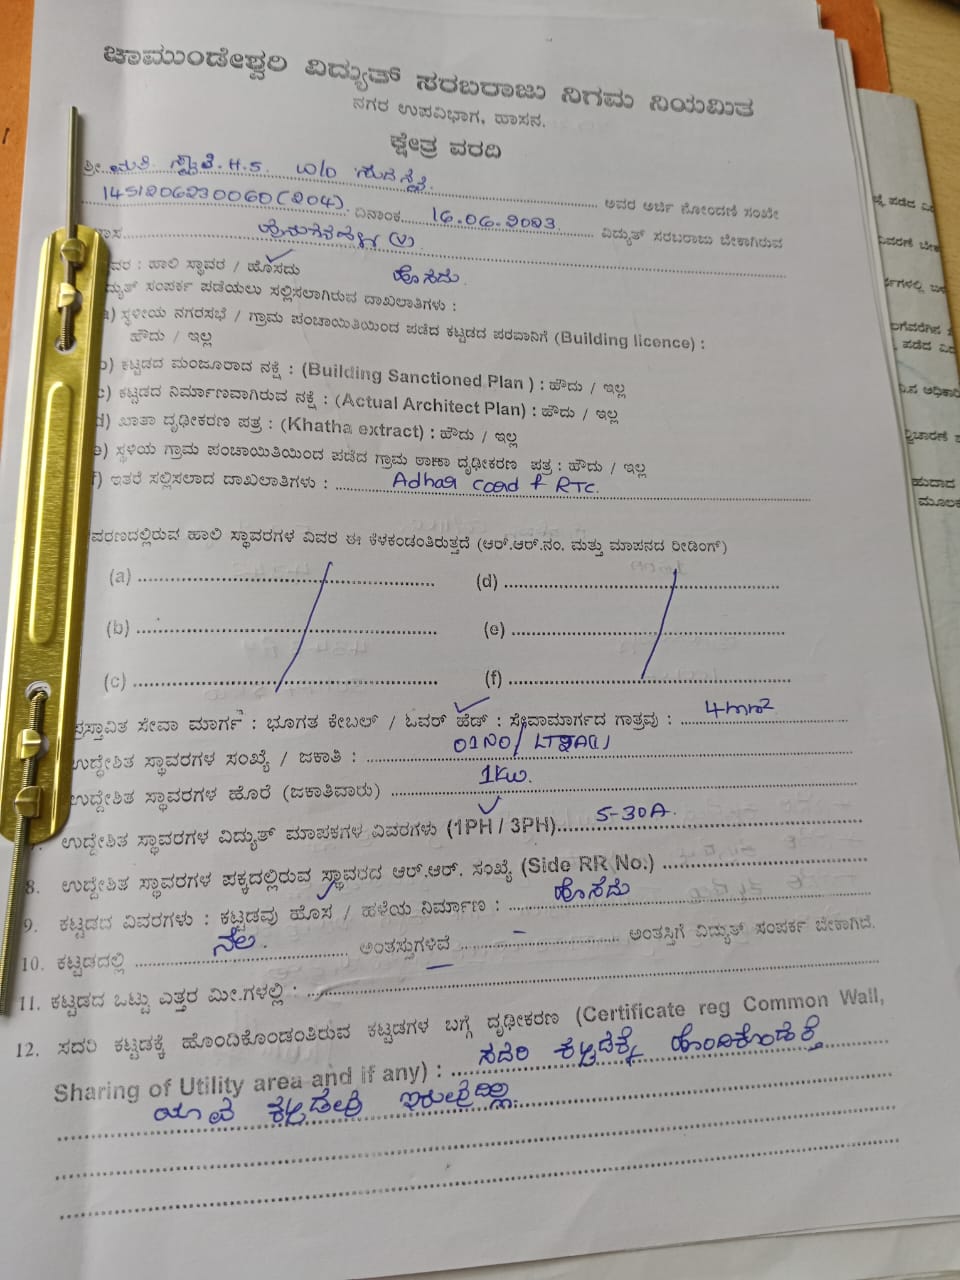 ಚಾಮುಂಡೇಶ್ವರಿ ವಿದ್ಯುತ್ ಸರಬರಾಜು ನಿಗಮ ನಿಯಮಿತ
ನಗರ ಉಪವಿಭಾಗ, ಹಾಸನ.
ಕ್ಷೇತ್ರ ವರದಿ
ಶ್ರೀ. ಮತಿ. H.S. W/o
ಅವರ ಅರ್ಜಿ ನೋಂದಣಿ ಸಂಖ್ಯೇ
1451206230060(204). ದಿನಾಂಕ 16.06.2023 ವಿದ್ಯುತ್ ಸರಬರಾಜು ಬೇಕಾಗಿರುವ
(v)
ವರ : ಹಾಲಿ ಸ್ಥಾವರ / ಹೊಸದು ಹೊಸದು.
ದ್ಯುತ್ ಸಂಪರ್ಕ ಪಡೆಯಲು ಸಲ್ಲಿಸಲಾಗಿರುವ ದಾಖಲಾತಿಗಳು :
a) ಸ್ಥಳೀಯ ನಗರಸಭೆ / ಗ್ರಾಮ ಪಂಚಾಯಿತಿಯಿಂದ ಪಡೆದ ಕಟ್ಟಡದ ಪರವಾನಿಗೆ (Building licence) :
ಹೌದು / ಇಲ್ಲ
b) ಕಟ್ಟಡದ ಮಂಜೂರಾದ ನಕ್ಷೆ : (Building Sanctioned Plan ) : ಹೌದು / ಇಲ್ಲ
c) ಕಟ್ಟಡದ ನಿರ್ಮಾಣವಾಗಿರುವ ನಕ್ಷೆ : (Actual Architect Plan) : ಹೌದು / ಇಲ್ಲ
d) ಖಾತಾ ದೃಢೀಕರಣ ಪತ್ರ : (Khatha extract) : ಹೌದು / ಇಲ್ಲ
e) ಸ್ಥಳಿಯ ಗ್ರಾಮ ಪಂಚಾಯಿತಿಯಿಂದ ಪಡೆದ ಗ್ರಾಮ ಠಾಣಾ ದೃಢೀಕರಣ ಪತ್ರ : ಹೌದು / ಇಲ್ಲ
f) ಇತರೆ ಸಲ್ಲಿಸಲಾದ ದಾಖಲಾತಿಗಳು : Adhar card & RTC.
ವರಣದಲ್ಲಿರುವ ಹಾಲಿ ಸ್ಥಾವರಗಳ ವಿವರ ಈ ಕೆಳಕಂಡಂತಿರುತ್ತದೆ (ಆರ್.ಆರ್.ನಂ. ಮತ್ತು ಮಾಪನದ ರೀಡಿಂಗ್)
(a) (d)
(b) (e)
(c) (f)
ಪ್ರಸ್ತಾವಿತ ಸೇವಾ ಮಾರ್ಗ : ಭೂಗತ ಕೇಬಲ್ / ಓವರ್ ಹೆಡ್ : ಸೇವಾಮಾರ್ಗದ ಗಾತ್ರವು : 4mm²
ಉದ್ದೇಶಿತ ಸ್ಥಾವರಗಳ ಸಂಖ್ಯೆ / ಜಕಾತಿ : 01NO/
ಉದ್ದೇಶಿತ ಸ್ಥಾವರಗಳ ಹೊರೆ (ಜಕಾತಿವಾರು) 1Kw.
ಉದ್ದೇಶಿತ ಸ್ಥಾವರಗಳ ವಿದ್ಯುತ್ ಮಾಪಕಗಳ ವಿವರಗಳು (1PH / 3PH) 5-30A.
8. ಉದ್ದೇಶಿತ ಸ್ಥಾವರಗಳ ಪಕ್ಕದಲ್ಲಿರುವ ಸ್ಥಾವರದ ಆರ್.ಆರ್. ಸಂಖ್ಯೆ (Side RR No.)
9. ಕಟ್ಟಡದ ವಿವರಗಳು : ಕಟ್ಟಡವು ಹೊಸ / ಹಳೆಯ ನಿರ್ಮಾಣ : ಹೊಸದು
10. ಕಟ್ಟಡದಲ್ಲಿ ನೆಲ. ಅಂತಸ್ತುಗಳಿವೆ - ಅಂತಸ್ತಿಗೆ ವಿದ್ಯುತ್ ಸಂಪರ್ಕ ಬೇಕಾಗಿದೆ.
11. ಕಟ್ಟಡದ ಒಟ್ಟು ಎತ್ತರ ಮೀ.ಗಳಲ್ಲಿ : -
12. ಸದರಿ ಕಟ್ಟಡಕ್ಕೆ ಹೊಂದಿಕೊಂಡಂತಿರುವ ಕಟ್ಟಡಗಳ ಬಗ್ಗೆ ದೃಢೀಕರಣ (Certificate reg Common Wall,
Sharing of Utility area and if any) : ಸದರಿ ಕಟ್ಟಡಕ್ಕೆ ಹೊಂದಿಕೊಂಡಂತೆ
ಯಾವ ಇರುವುದಿಲ್ಲ.